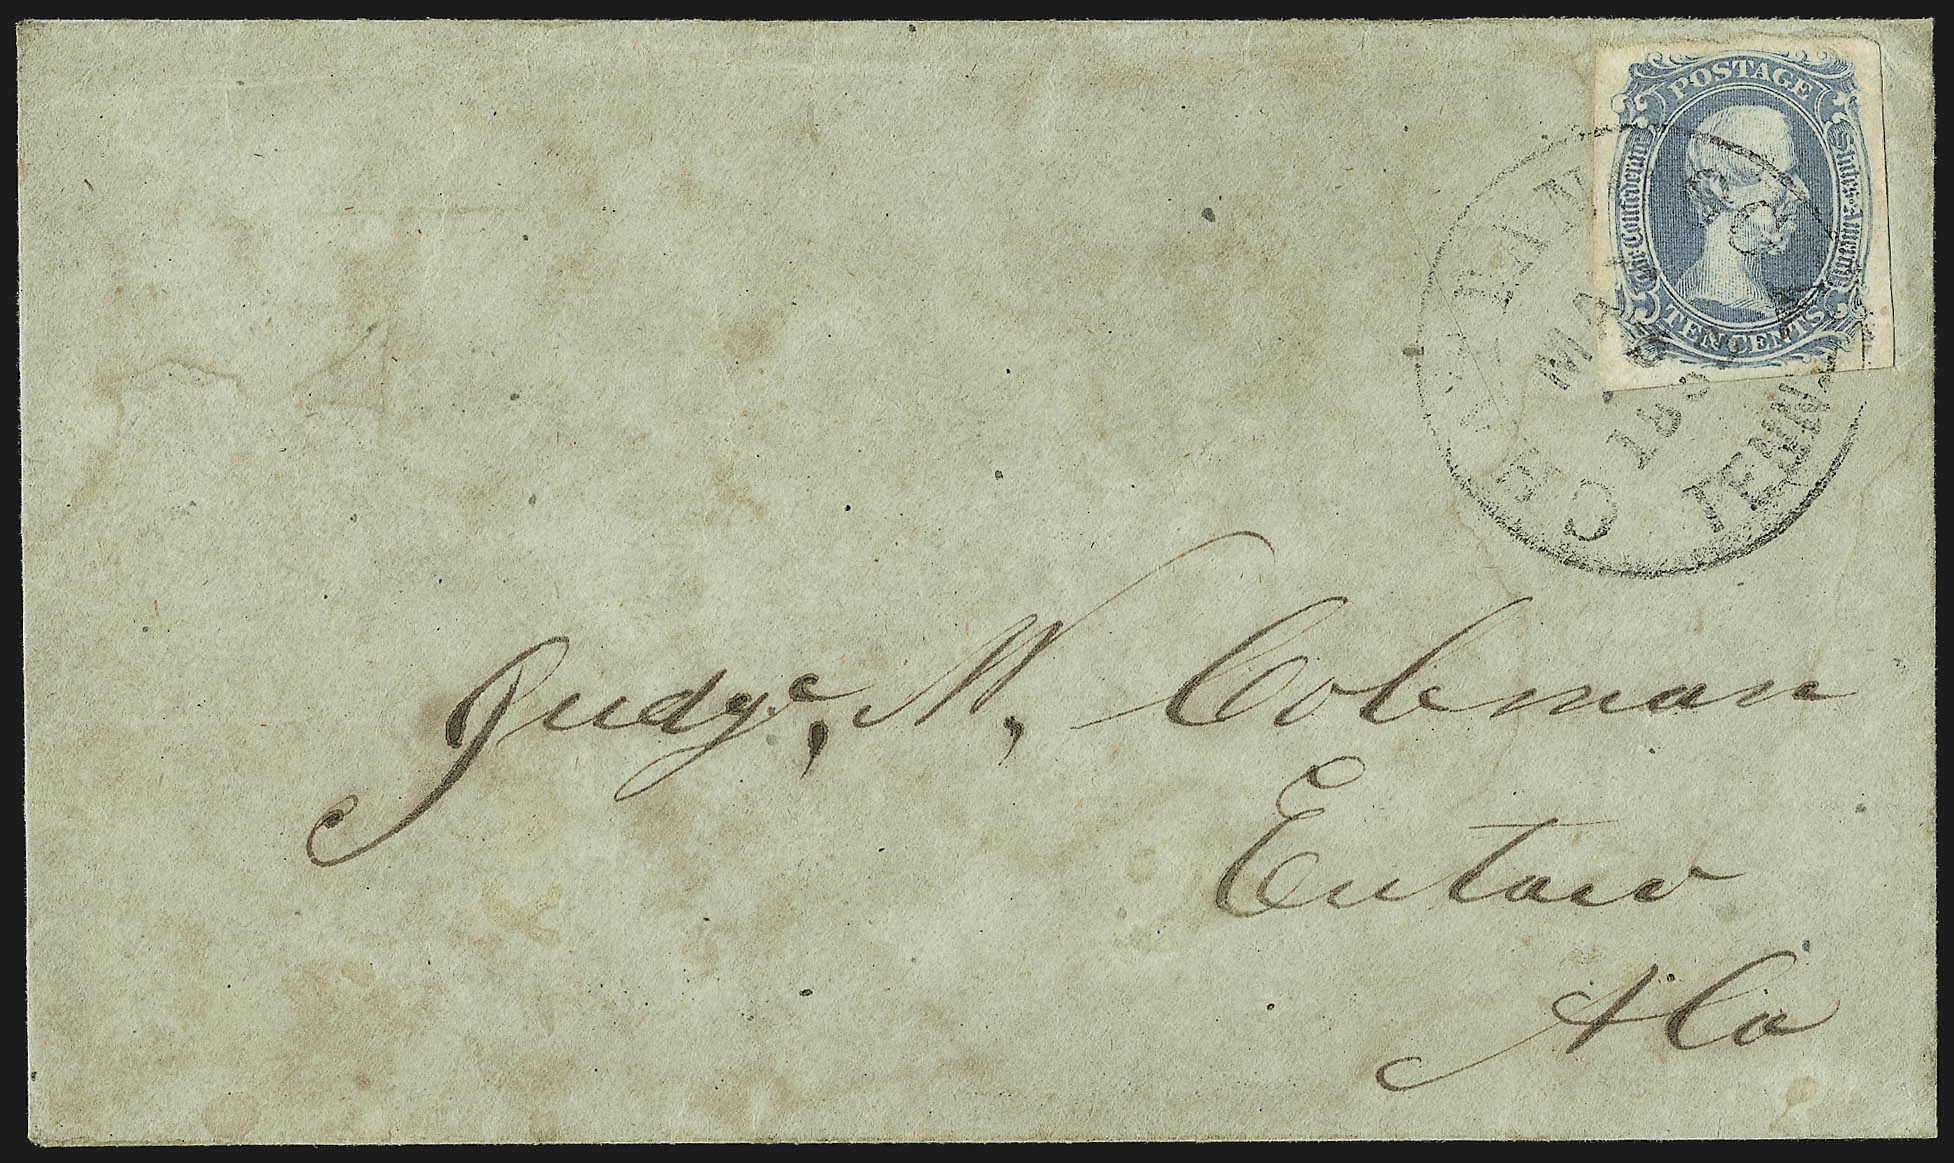 POSTAGE
The Confederate States of America
TEN CENTS
CHATTANOOGA
MAY
TENN.
Judge, W, Coleman
Eutaw
Ala